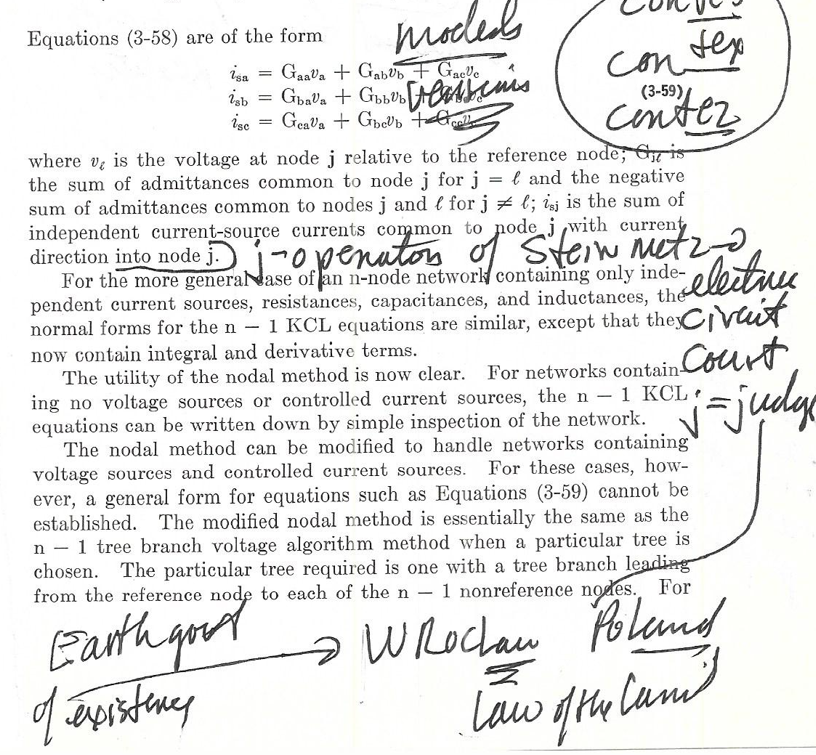 Equations (3-58) are of the form
models
i_sa = G_aa v_a + G_ab v_b + G_ac v_c
i_sb = G_ba v_a + G_bb v_b
(3-59)
i_sc = G_ca v_a + G_bc v_b +
con tex
contez
where v_ℓ is the voltage at node j relative to the reference node; G_jℓ is
the sum of admittances common to node j for j = ℓ and the negative
sum of admittances common to nodes j and ℓ for j ≠ ℓ; i_sj is the sum of
independent current-source currents common to node j with current
direction into node j.
j-operators of Steinmetz
For the more general case of an n-node network containing only inde-
pendent current sources, resistances, capacitances, and inductances, the
normal forms for the n − 1 KCL equations are similar, except that they
now contain integral and derivative terms.
electric
circuit
court
j = judge
The utility of the nodal method is now clear. For networks contain-
ing no voltage sources or controlled current sources, the n − 1 KCL
equations can be written down by simple inspection of the network.
The nodal method can be modified to handle networks containing
voltage sources and controlled current sources. For these cases, how-
ever, a general form for equations such as Equations (3-59) cannot be
established. The modified nodal method is essentially the same as the
n − 1 tree branch voltage algorithm method when a particular tree is
chosen. The particular tree required is one with a tree branch leading
from the reference node to each of the n − 1 nonreference nodes. For
Earth
of existency
WRoclaw Poland
Law of the Land